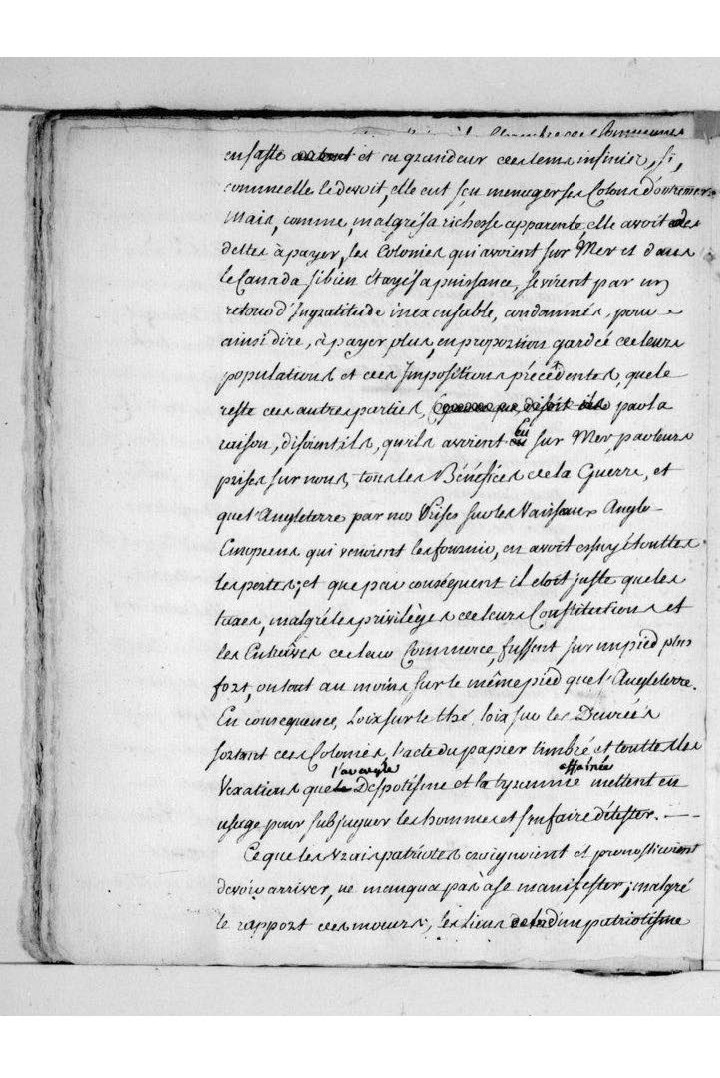 Chambre des Communes
en faste et en grandeur des tems infinis, si,
comme elle le devoit, elle eut sçu menager ses Colons d'outremer.
Mais, comme, malgré sa richesse apparente, elle avoit des
dettes à payer, les Colonies qui avoient sur Mer et dans
le Canada si bien étayé sa puissance, se virent par un
retour d'Ingratitude inexcusable, condamnés, pour
ainsi dire, à payer plus, en proportion gardée de leurs
populations et des Impositions précédentes, que le
reste des autres parties, par la
raison, disoient ils, qu'ils avoient eu sur Mer, par leurs
prises sur nous, tous les Bénéfices de la Guerre, et
que l'Angleterre par nos Prises sur les Vaisseaux Anglo-
Européens qui venoient les fournir, en avoit essuyé touttes
les pertes; et que par conséquent il étoit juste que les
taxes, malgré les privilèges de leurs Constitutions et
les Entraves de leur Commerce, fussent sur un pied plus
fort, ou tout au moins sur le même pied que l'Angleterre.
En conséquence, Loix sur le thé, loix sur les Denrées
sortant des Colonies, l'acte du papier timbré et touttes les
Vexations que l'aveugle Despotisme et la tyrannie effrénée mettent en
usage pour subjuguer les hommes et s'en faire détester. —
Ce que les vrais patriotes craignoient et pronostiquoient
devoir arriver, ne manqua pas à se manifester; malgré
le rapport des moeurs, les liens d'un patriotisme